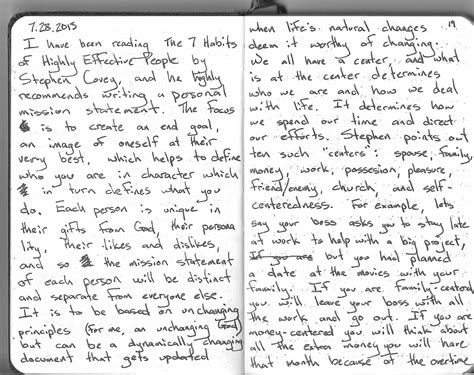 7.28.2013
I have been reading The 7 Habits
of Highly Effective People by
Stephen Covey, and he highly
recommends writing a personal
mission statement. The focus
is to create an end goal,
an image of oneself at their
very best, which helps to define
who you are in character which
in turn defines what you
do. Each person is unique in
their gifts from God, their persona
lity, their likes and dislikes,
and so the mission statement
of each person will be distinct
and separate from everyone else.
It is to be based on unchanging
principles (for me, an unchanging God)
but can be a dynamically changing
document that gets updated
19
when life's natural changes
deem it worthy of changing.
We all have a center, and what
is at the center determines
who we are and how we deal
with life. It determines how
we spend our time and direct
our efforts. Stephen points out
ten such "centers": spouse, family,
money, work, possesion, pleasure,
friend/enemy, church, and self-
centeredness. For example, lets
say your boss asks you to stay late
at work to help with a big project,
If you are but you had planned
a date at the movies with your
family. If you are family-centered
you will leave your boss with all
the work and go out. If you are
money-centered you will think about
all the extra money you will have
that month because of the overtime